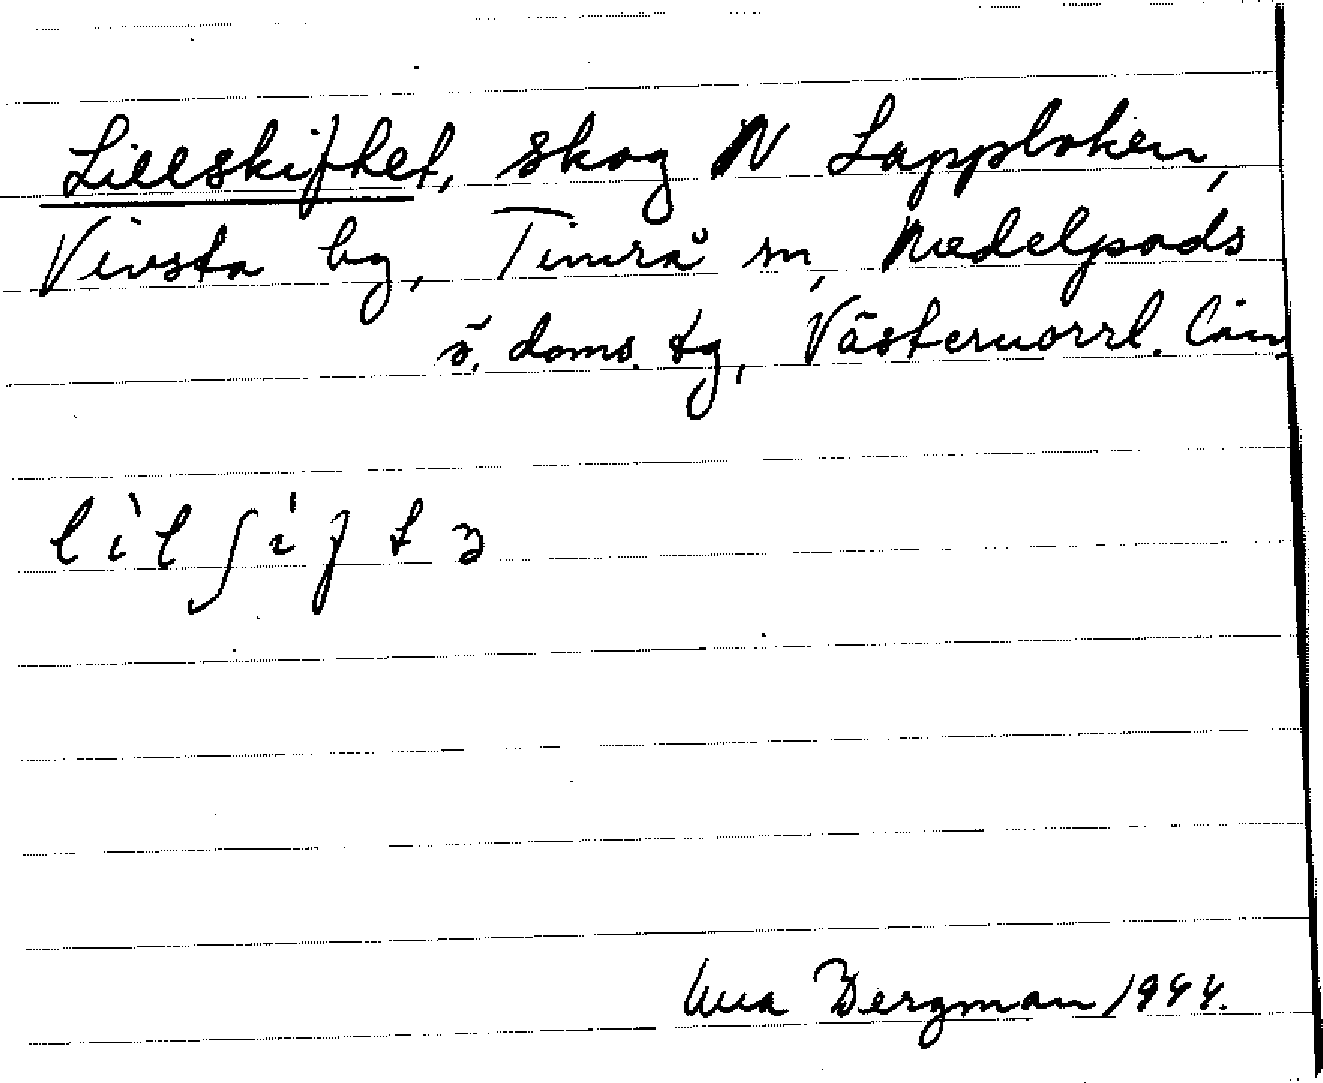 Lillskiftet, skog N Lappboken,
Vivsta by, Timrå sn, Medelpads
ö. doms. tg, Västernorrl. län
lìlʃiftə
Bergman 1944.